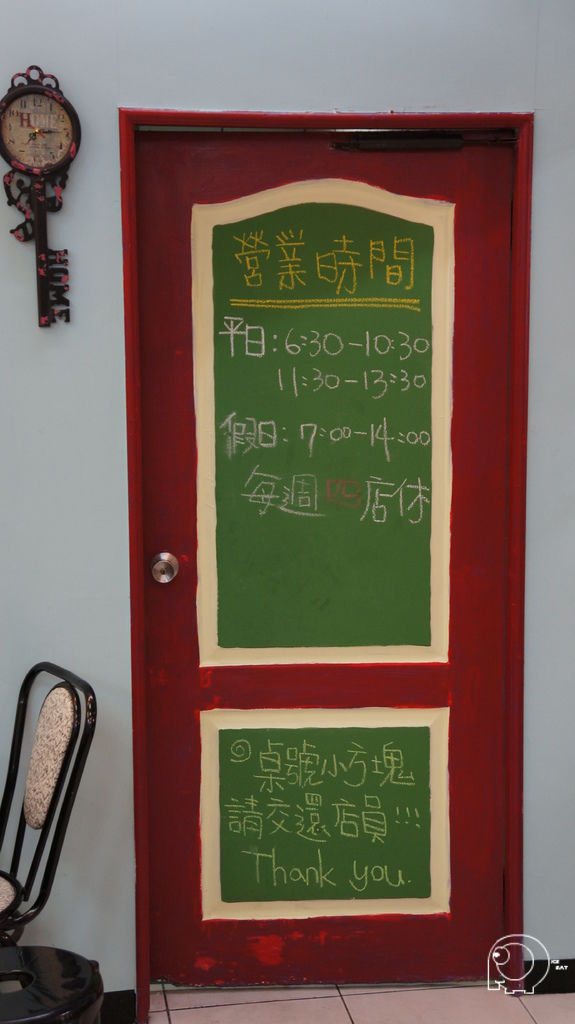 HOME
HOME
營業時間
平日：6:30-10:30
11:30-13:30
假日：7:00-14:00
每週四店休
桌號小方塊
請交還店員!!!
Thank you.
ICE
EAT